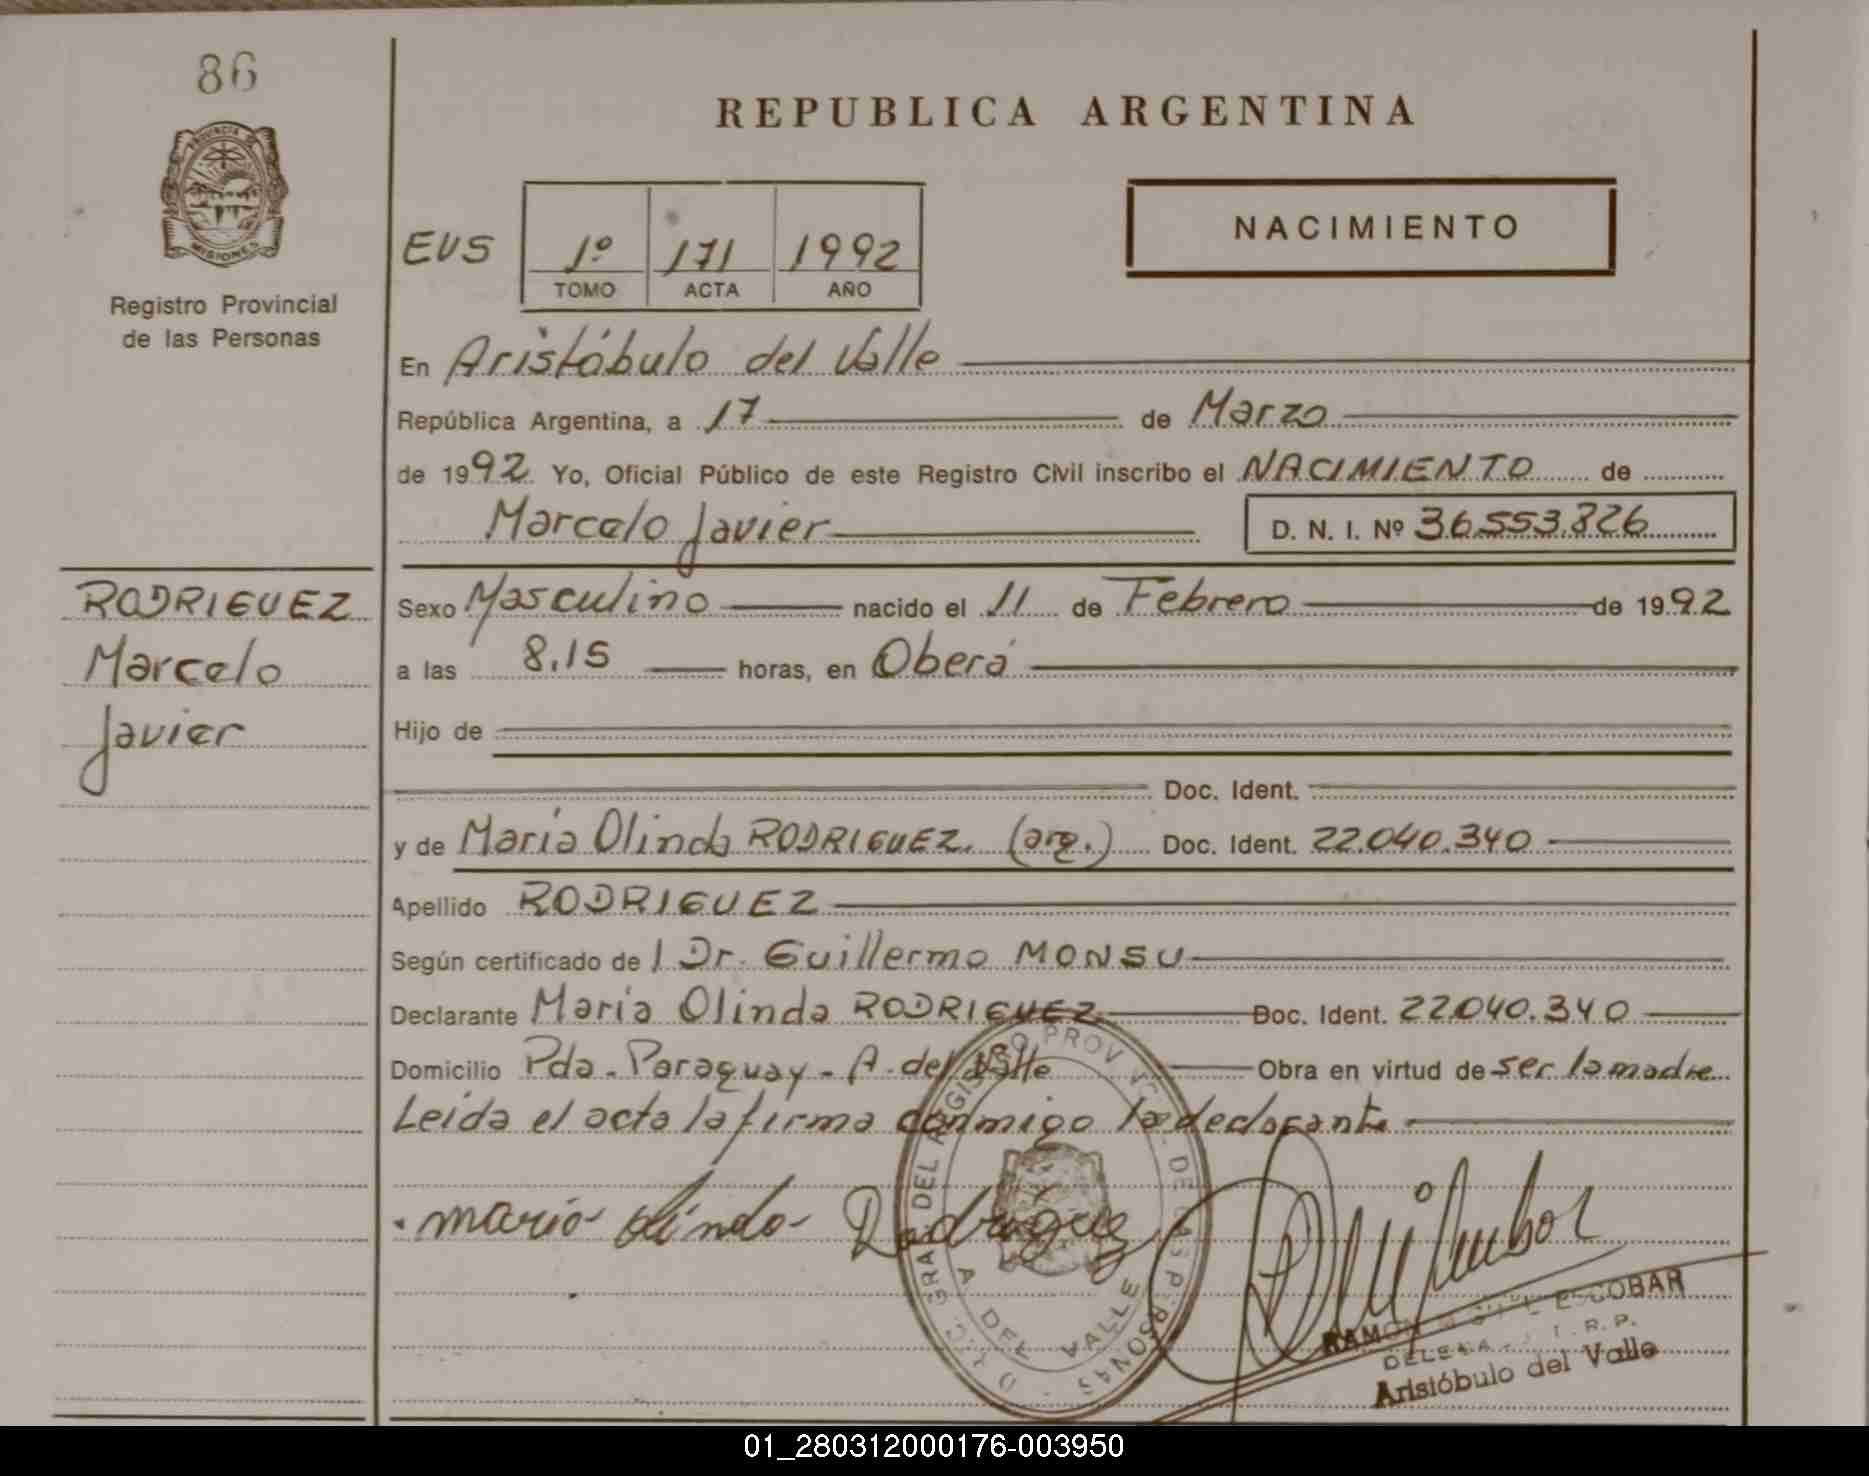 86
PROVINCIA DE
MISIONES
Registro Provincial
de las Personas
RODRIGUEZ
Marcelo
Javier
REPUBLICA ARGENTINA
EVS
1º 171 1992
TOMO ACTA AÑO
NACIMIENTO
En Aristóbulo del Valle
República Argentina, a 17 de Marzo
de 1992. Yo, Oficial Público de este Registro Civil inscribo el NACIMIENTO de
Marcelo Javier D. N. I. Nº 36.553.826
Sexo Masculino nacido el 11 de Febrero de 1992
a las 8.15 horas, en Oberá
Hijo de
Doc. Ident.
y de María Olinda RODRIGUEZ. (arg.) Doc. Ident. 22.040.340
Apellido RODRIGUEZ
Según certificado de l Dr. Guillermo MONSU
Declarante María Olinda RODRIGUEZ Doc. Ident. 22.040.340
Domicilio Pda. Paraguay - A. del Valle Obra en virtud de ser la madre
Leída el acta la firma conmigo la declarante
maria olinda Rodriguez
A DEL VALLE
RAMON ESCOBAR
Aristóbulo del Valle
01_280312000176-003950